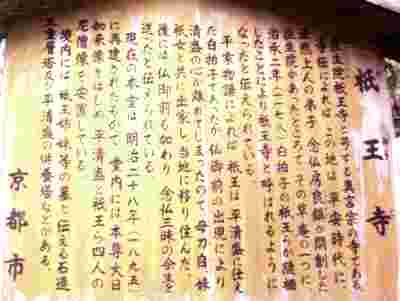 祇王寺
往生院祇王寺と号する真言宗の寺である。
寺伝によれば、この地は、平安時代に、
法然上人の弟子、念仏房良鎮が開創した
往生院があったところで、その草庵の一つに、
治承二年(一一七八)白拍子の祇王らが隠棲
したことにより祇王寺と呼ばれるように
なったと伝えられている。
平家物語によれば、祇王は平清盛に仕え
た白拍子であったが、仏御前の出現により
清盛の心が離れてしまったので、母刀自、妹
祇女と共に出家し当地に移り住んだ。
後には仏御前も加わり、念仏三昧の余生を
送ったと伝えられている。
現在の本堂は、明治二十八年(一八九五)
に再建されたもので、堂内には、本尊大日
如来像をはじめ、平清盛と祇王ら四人の
尼僧像を安置している。
境内には、祇王姉妹等の墓と伝える石造
三重層塔及び平清盛の供養塔などがある。
京都市